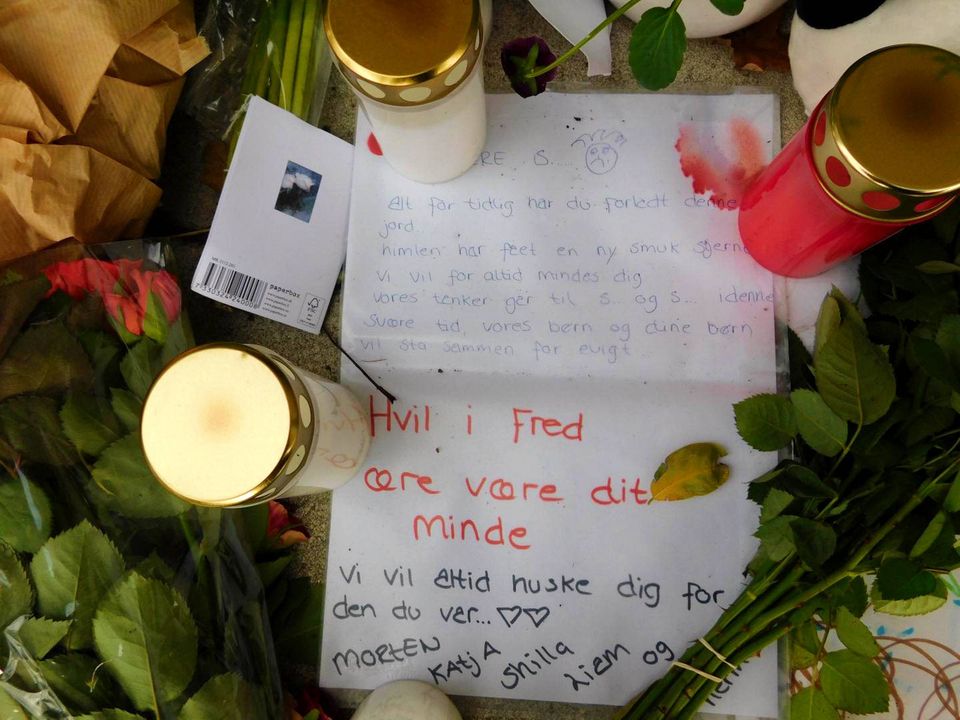 RE S.....
Alt for tidlig har du forladt denne
jord.
himlen har fået en ny smuk stjerne
Vi vil for altid mindes dig
vores tanker går til S... og S... i denne
svære tid, vores børn og dine børn
vil stå sammen for evigt
Hvil i Fred
ære være dit
minde
Vi vil altid huske dig for
den du var... ♡♡
MORTEN
KATJA
Shilla
Liem og
paperbox